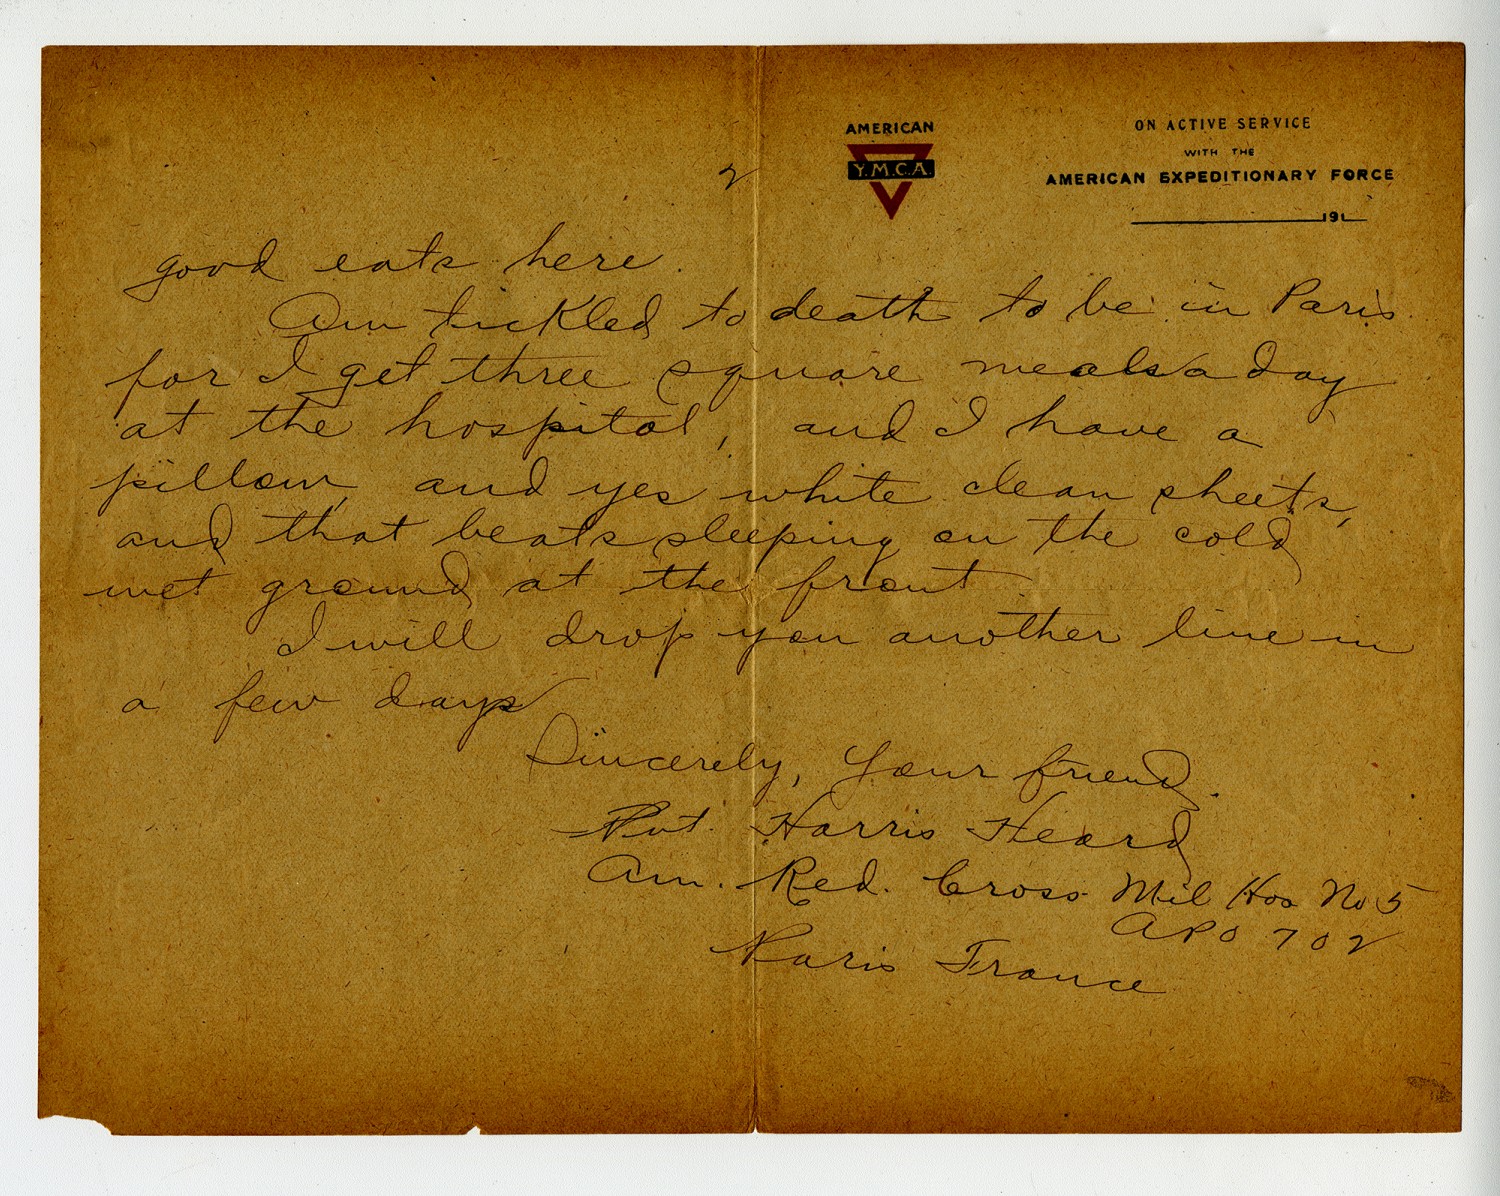 AMERICAN
Y.M.C.A.
ON ACTIVE SERVICE
WITH THE
AMERICAN EXPEDITIONARY FORCE
191
2
good eats here.
Am tickled to death to be in Paris
for I get three square meals a day
at the hospital, and I have a
pillow, and yes white clean sheets,
and that beats sleeping on the cold
wet ground at the front.
I will drop you another line in
a few days
Sincerely, Your friend.
Pvt. Harris Heard
Am. Red. Cross Mil Hos No 5
APO 702
Paris France